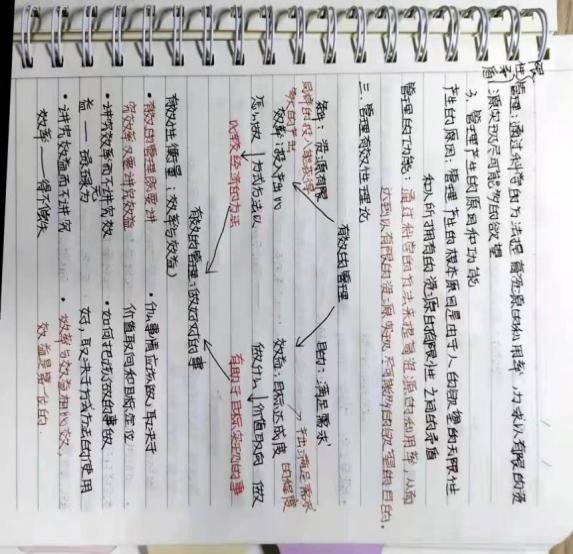 管理：通过科学的方法提高资源的利用率，力求以有限的资
源实现尽可能多的欲望
3、管理产生的原因和功能
产生的原因：管理产生的根本原因是由于人的欲望的无限性
和人所拥有的资源的有限性之间的矛盾
管理的功能：通过科学的方法来提高资源的利用率，从而
达到以有限的资源实现尽可能多的欲望的目的。
三、管理有效性理论
有效的管理
资源有限
目的：满足需求
同样的投入能获得
多的产出
产出满足需求
的程度
效率：投入产出
效益：目标达成度
怎么做
方式方法
做什么
价值取向
做
以较经济的方法
有助于目标实现的事
有效的管理：做好对的事
有效性衡量：效率与效益
有效的管理既要讲
究效率又要讲究效益
做事情应该做，取决于
价值取向和目标定位
讲究效率而不讲究效
益——碌碌为
无
如何把该做的事做
好，取决于方式方法的使用
讲究效益而不讲究
效率——得不偿失
效率与效益相比较，
效益是第一位的。